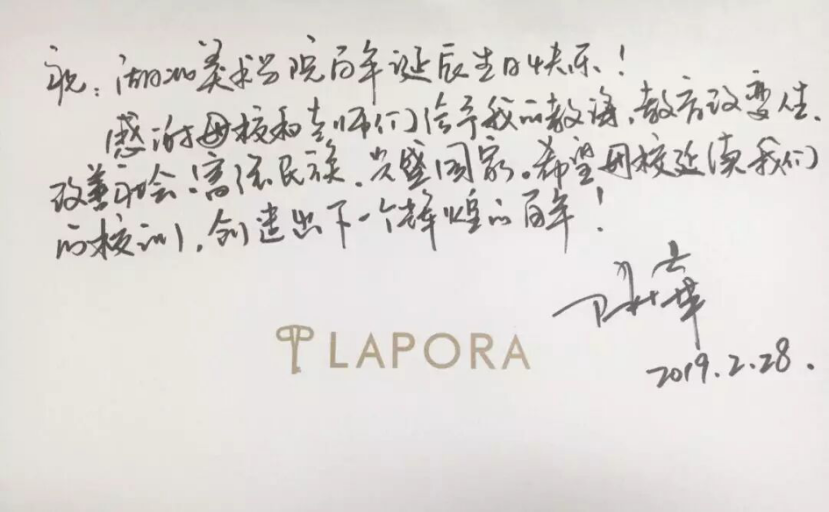 祝:湖北美术学院百年诞辰生日快乐!
感谢母校和老师们给予我的教诲,教育改变人生、
改善社会、富强民族、兴盛国家。希望母校延续我们
的校训,创造出下一个辉煌的百年!
2019.2.28.
LAPORA